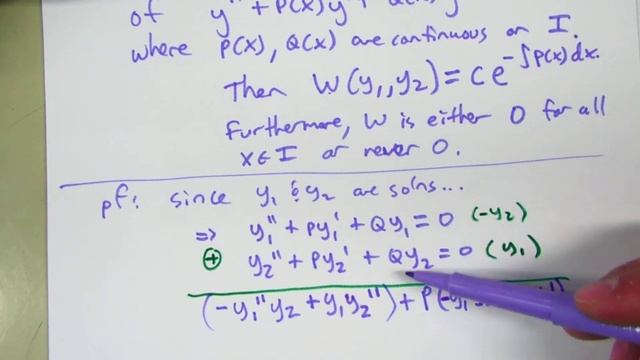 of y'' + P(x)y
where P(x), Q(x) are continuous on I.
Then W(y₁,y₂) = ce^(-∫P(x)dx).
Furthermore, W is either 0 for all
x∈I or never 0.
pf: since y₁ & y₂ are solns...
⇒ y₁'' + Py₁' + Qy₁ = 0 (-y₂)
⊕ y₂'' + Py₂' + Qy₂ = 0 (y₁)
(-y₁''y₂ + y₁y₂'') + P(-y₁